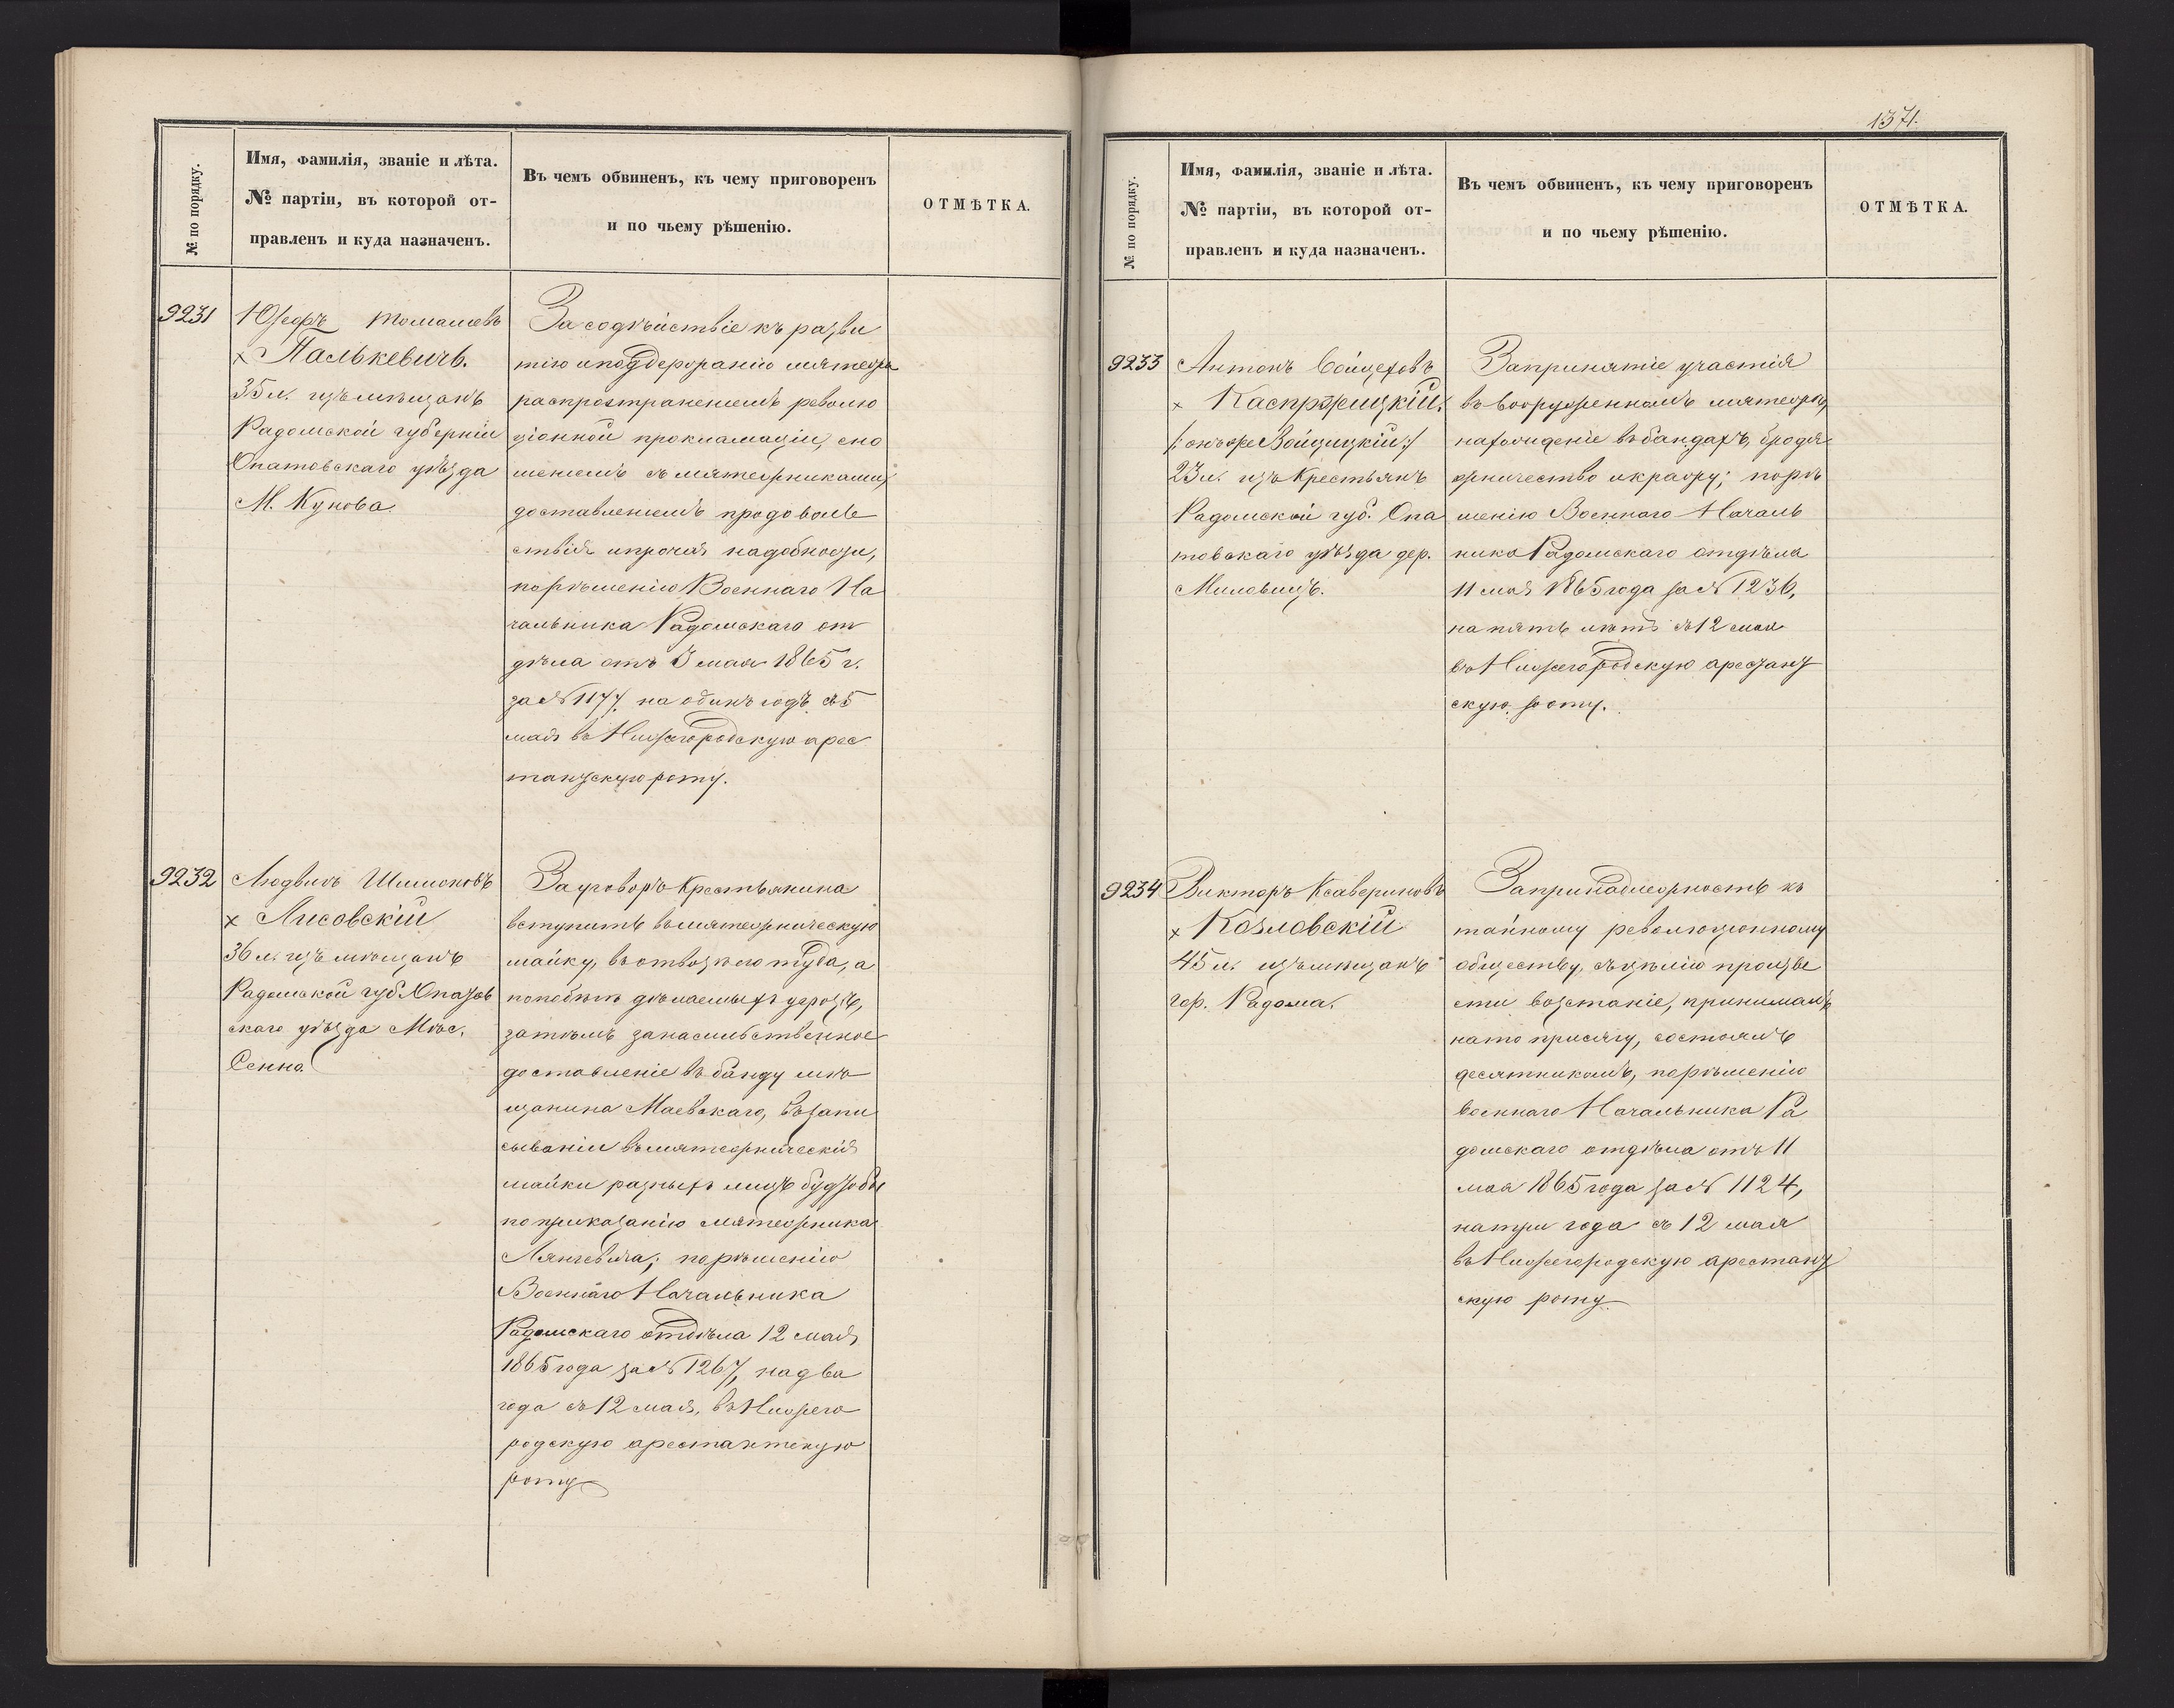 № по порядку.
Имя, фамилія, званіе и лѣта.
№ партіи, въ которой от-
правленъ и куда назначенъ.
Въ чемъ обвиненъ, къ чему приговоренъ
и по чьему рѣшенію.
ОТМѢТКА.
9231
Юзефъ Томашевъ
× Палькевичъ.
35 л. изъ мѣщанъ
Радомской губерніи
Опатовскаго уѣзда
М. Кунова.
За содѣйствіе къ разви
тію и поддержанію мятежа
распространеніемъ револю
ціонной прокламаціи, сно
шеніемъ съ мятежниками,
доставленіемъ продоволь
ствія и прочія надобности,
по рѣшенію Военнаго На
чальника Радомскаго от
дѣла отъ 3 мая 1865 г.
за № 1177. на одинъ годъ съ 5
мая въ Нижегородскую арес
тантскую роту.
9232
Людвикъ Шимоновъ
× Лисовскій
36 л. изъ мѣщанъ
Радомской губ. Опатов
скаго уѣзда Мѣс.
Сенна
За уговоръ Крестьянина
вступить въ мятежническую
шайку, въ отвозъ его туда, а
по побѣгѣ дѣлаемыхъ угрозъ,
затѣмъ за насильственное
доставленіе въ банду мѣ
щанина Маевскаго, въ запи
сываніи въ мятежническія
шайки разныхъ лицъ будто бы
по приказанію мятежника
Лянгевича; по рѣшенію
Военнаго Начальника
Радомскаго отдѣла 12 мая
1865 года за № 1267, на два
года съ 12 мая, въ Нижего
родскую арестантскую
роту
1371.
№ по порядку.
Имя, фамилія, званіе и лѣта.
№ партіи, въ которой от-
правленъ и куда назначенъ.
Въ чемъ обвиненъ, къ чему приговоренъ
и по чьему рѣшенію.
ОТМѢТКА.
9233
Антонъ Войцеховъ
× Каспржицкій.
/: онъ же Войцицкій :/
23 л. изъ Крестьянъ
Радомской губ. Опа
товскаго уѣзда дер.
Миловицъ.
За принятіе участія
въ вооруженномъ мятежѣ,
нахожденіе въ бандахъ, бродя
жничество и кражу; по рѣ
шенію Военнаго Началь
ника Радомскаго отдѣла
11 мая 1865 года за № 1236,
на пять лѣтъ съ 12 мая
въ Нижегородскую арестант
скую роту.
9234
Викторъ Ксавериновъ
× Козловскій
45 л. изъ мѣщанъ
гор. Радома.
За принадлежность къ
тайному революціонному
обществу, съ цѣлію произве
сти возстаніе, принималъ
на то присягу, состоялъ
десятникомъ, по рѣшенію
военнаго Начальника Ра
домскаго отдѣла отъ 11
мая 1865 года за № 1124,
на три года съ 12 мая
въ Нижегородскую арестант
скую роту